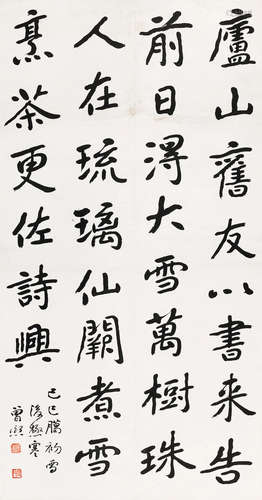 廬山舊友以書来告
前日得大雪萬樹珠
人在琉璃仙闕煮雪
烹茶更佐詩興
己巳臘初雪
後極寒
曾熙